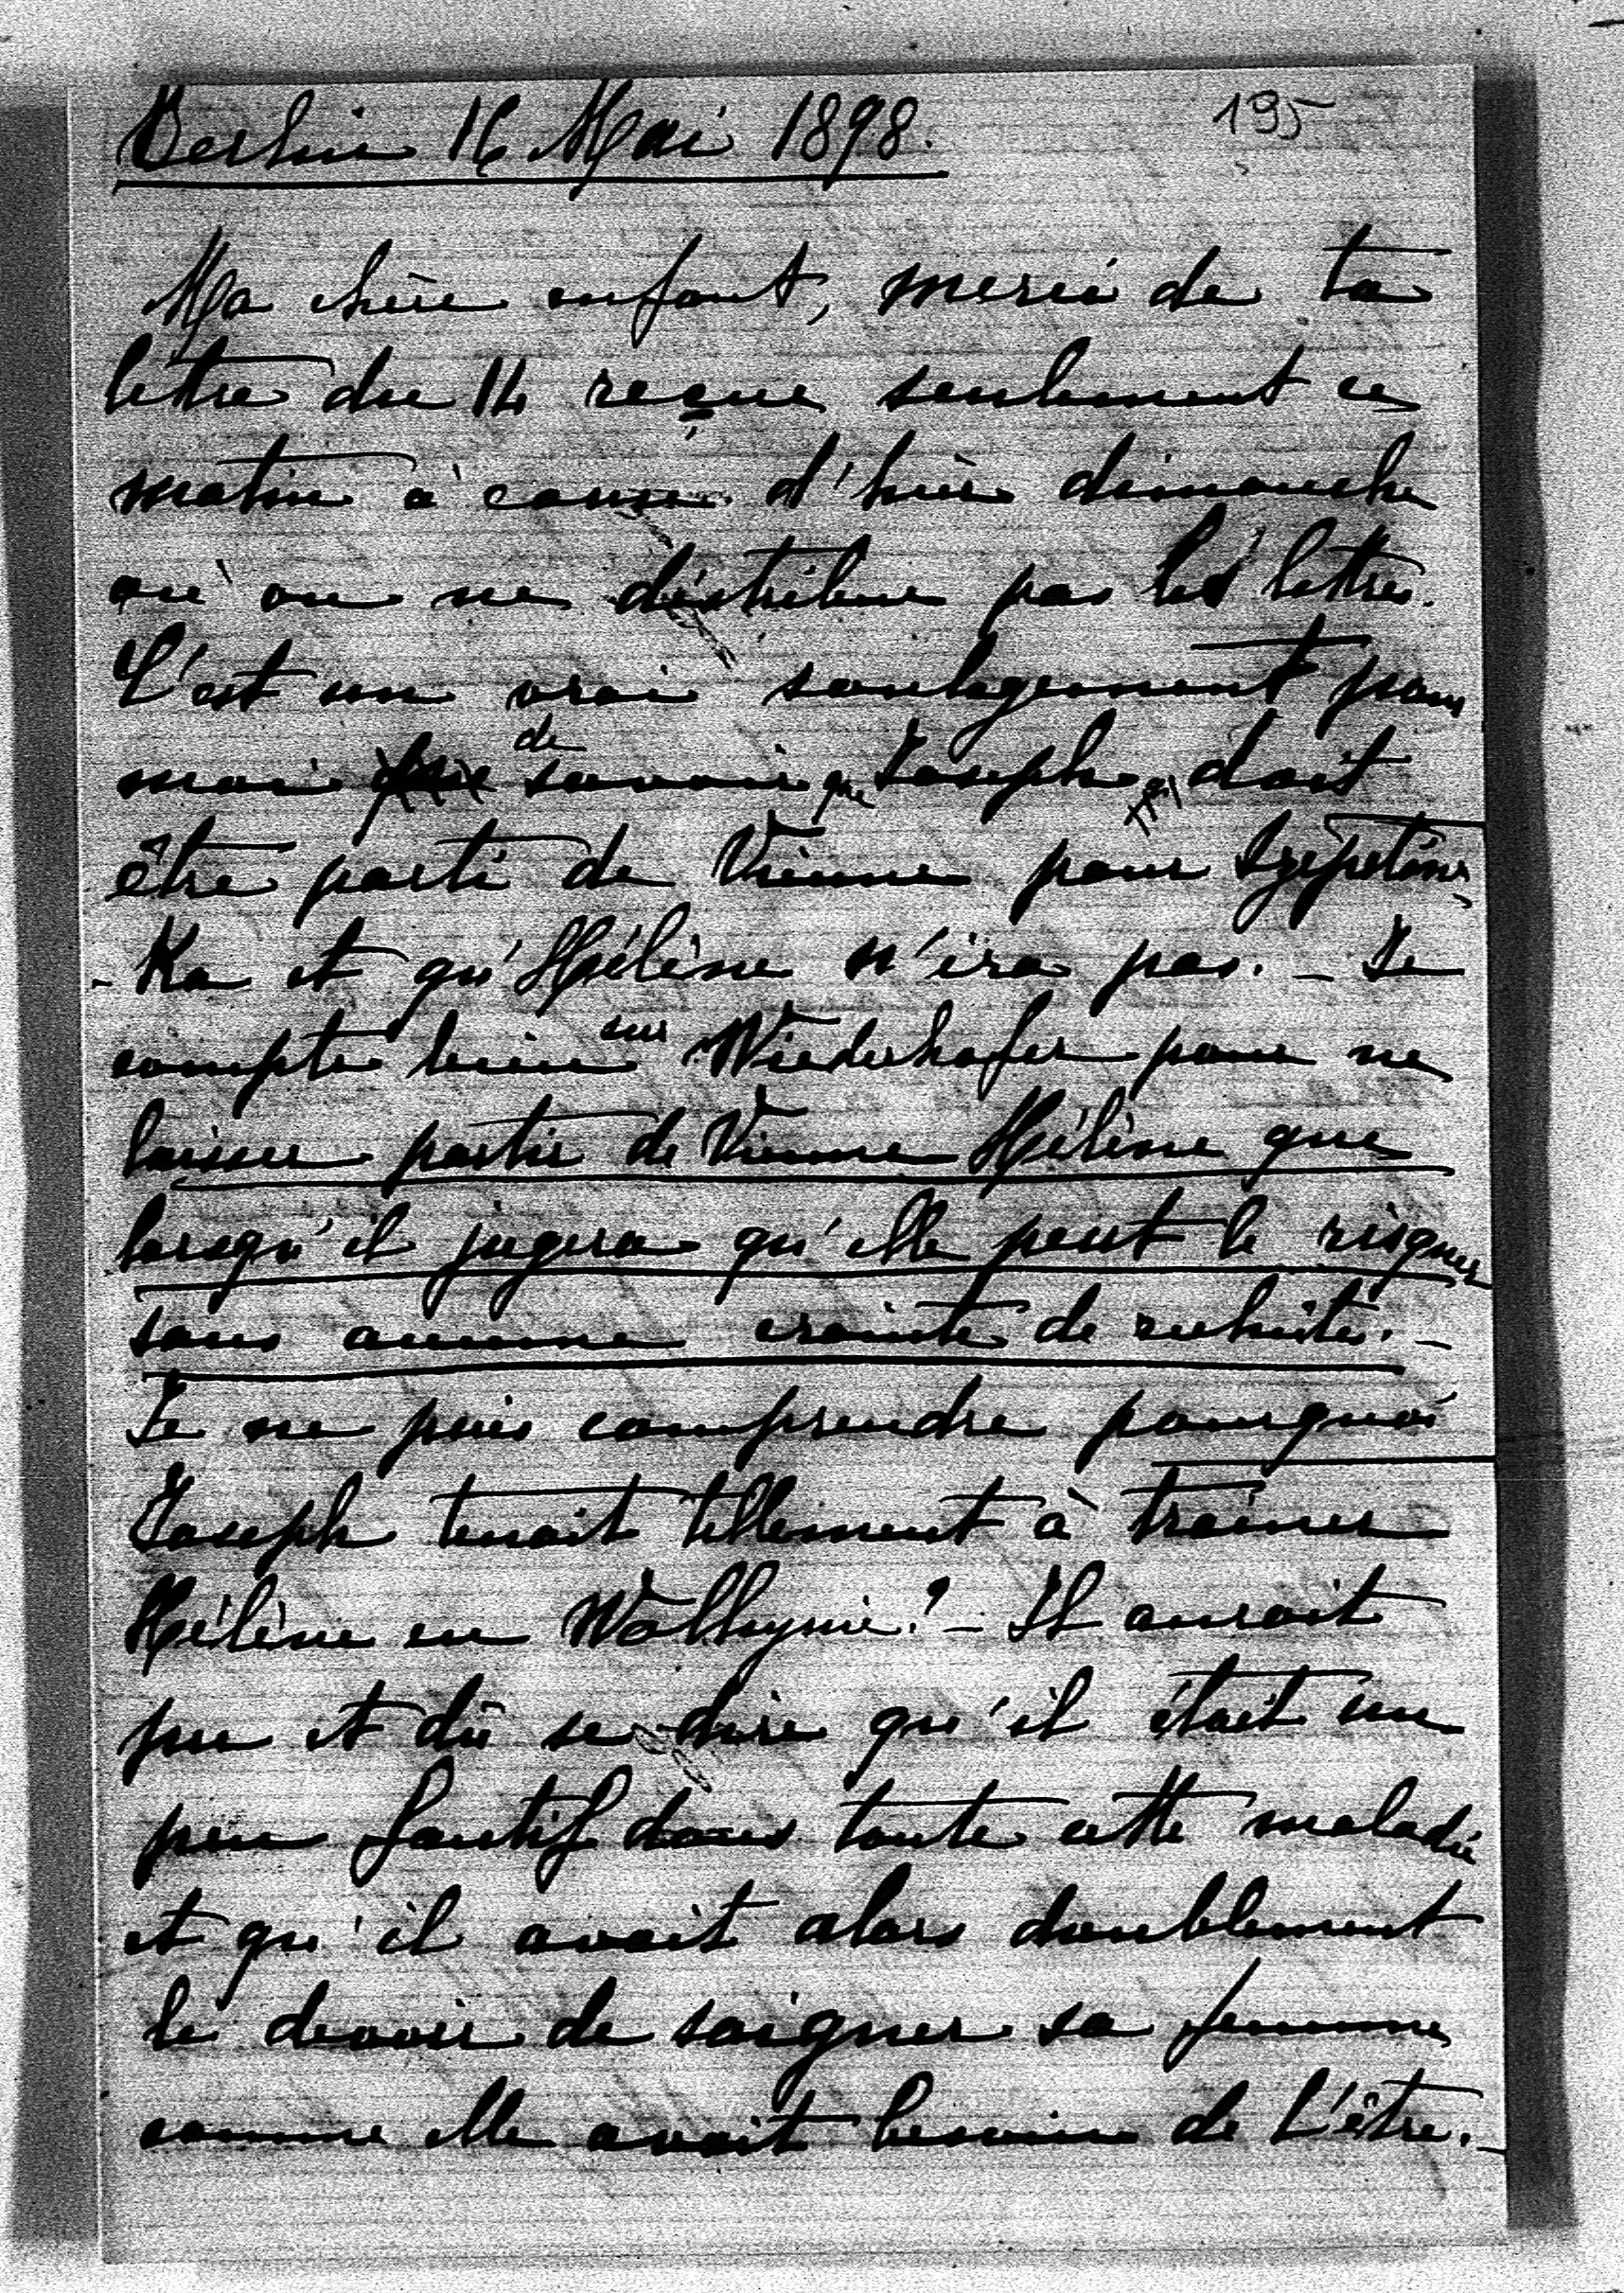 Berlin 16 Mai 1898.
195
Ma chère enfant, merci de ta
lettre du 14 reçue seulement ce
matin à cause d'hier dimanche
où on ne distribue pas les lettres.
C'est un vrai soulagement pour
moi de savoir que Joseph doit
être parti de Vienne pour Szepetów-
-Ka et qu'Hélène n'ira pas. _ Je
compte bien sur Wiederhofer pour ne
laisser partir de Vienne Hélène que
lorsqu'il jugera qu'elle peut le risquer
sans aucune crainte de rechute. _
Je ne puis comprendre pourquoi
Joseph tenait tellement à traîner
Hélène en Wolhynie? _ Il aurait
pu et dû se dire qu'il était un
peu fautif dans toute cette maladie
et qu'il avait alors doublement
le devoir de soigner sa femme
comme elle avait besoin de l'être. _